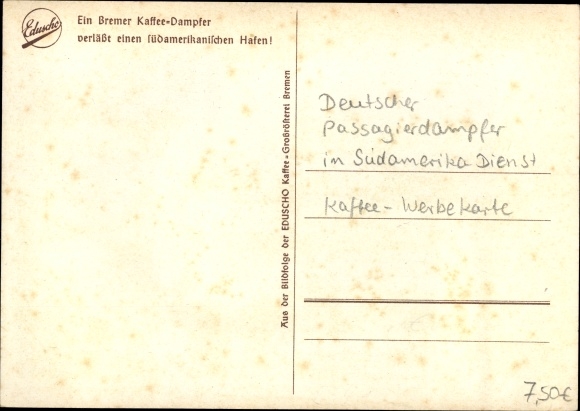 Eduscho
Ein Bremer Kaffee-Dampfer
verläßt einen südamerikanischen Hafen!
Aus der Bildfolge der EDUSCHO Kaffee-Großrösterei Bremen
Deutscher
Passagierdampfer
in Südamerika Dienst
Kaffee - Werbekarte
7,50€